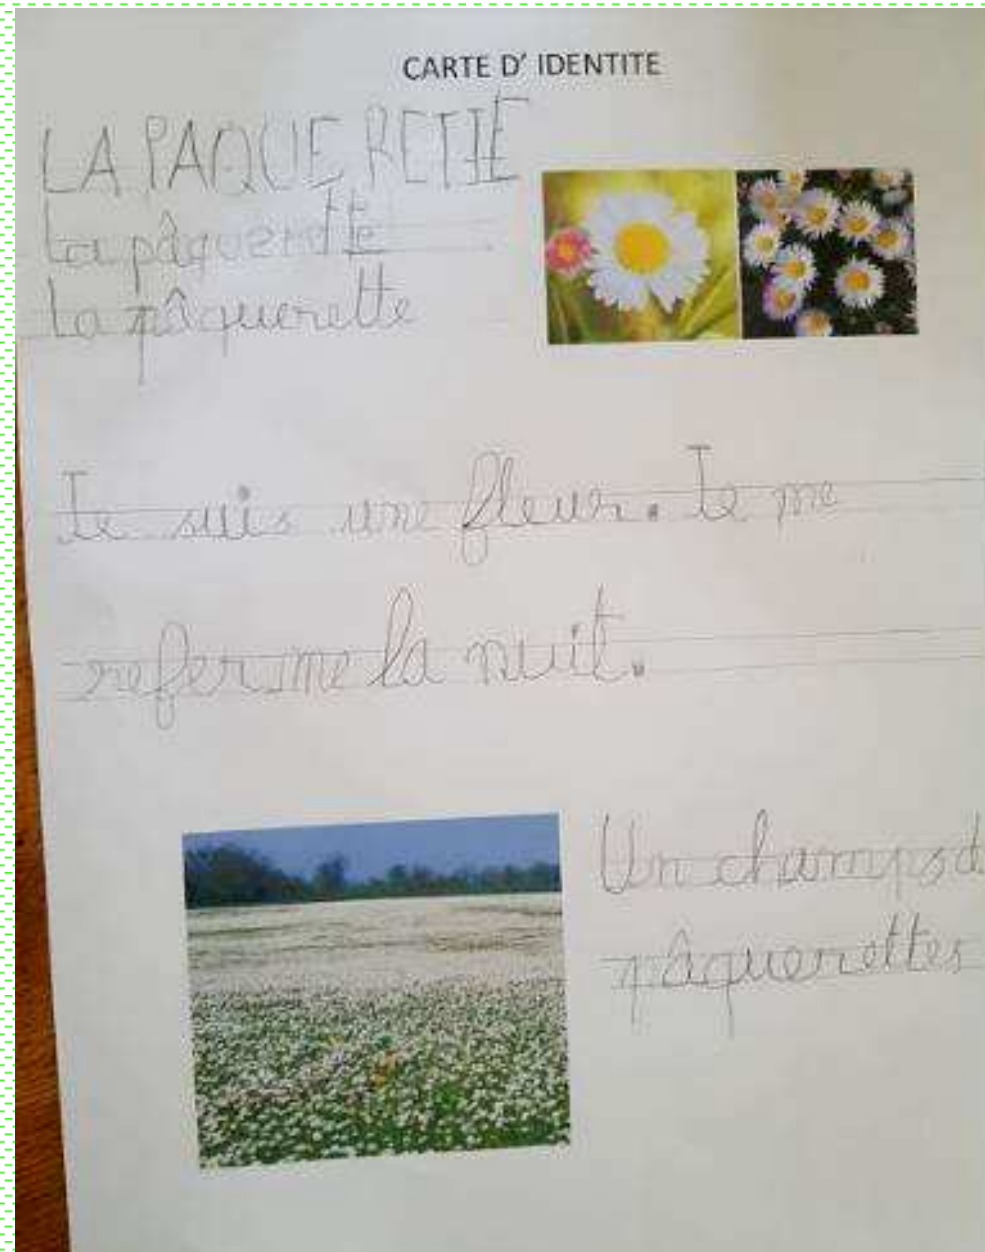 CARTE D' IDENTITE
LA PAQUERETTE
La pâquerette
La pâquerette
Je suis une fleur. Je me
referme la nuit.
Un champs d
pâquerettes